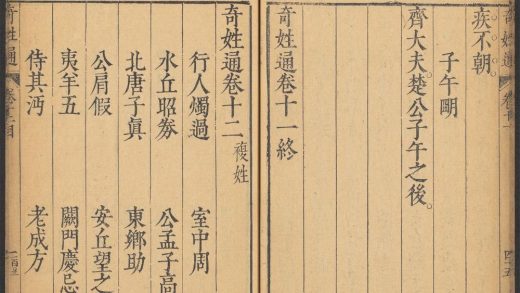 奇姓通 卷十一 四十五
疾不朝。
子午朙
齊大夫楚公子午之後。
奇姓通卷十一終
奇姓通卷十二 複姓
行人燭過 室中周
水丘昭券 公孟子高
北唐子眞 東鄉助
公肩假 安丘望之
夷羊五 闕門慶忌
侍其沔 老成方
奇姓通